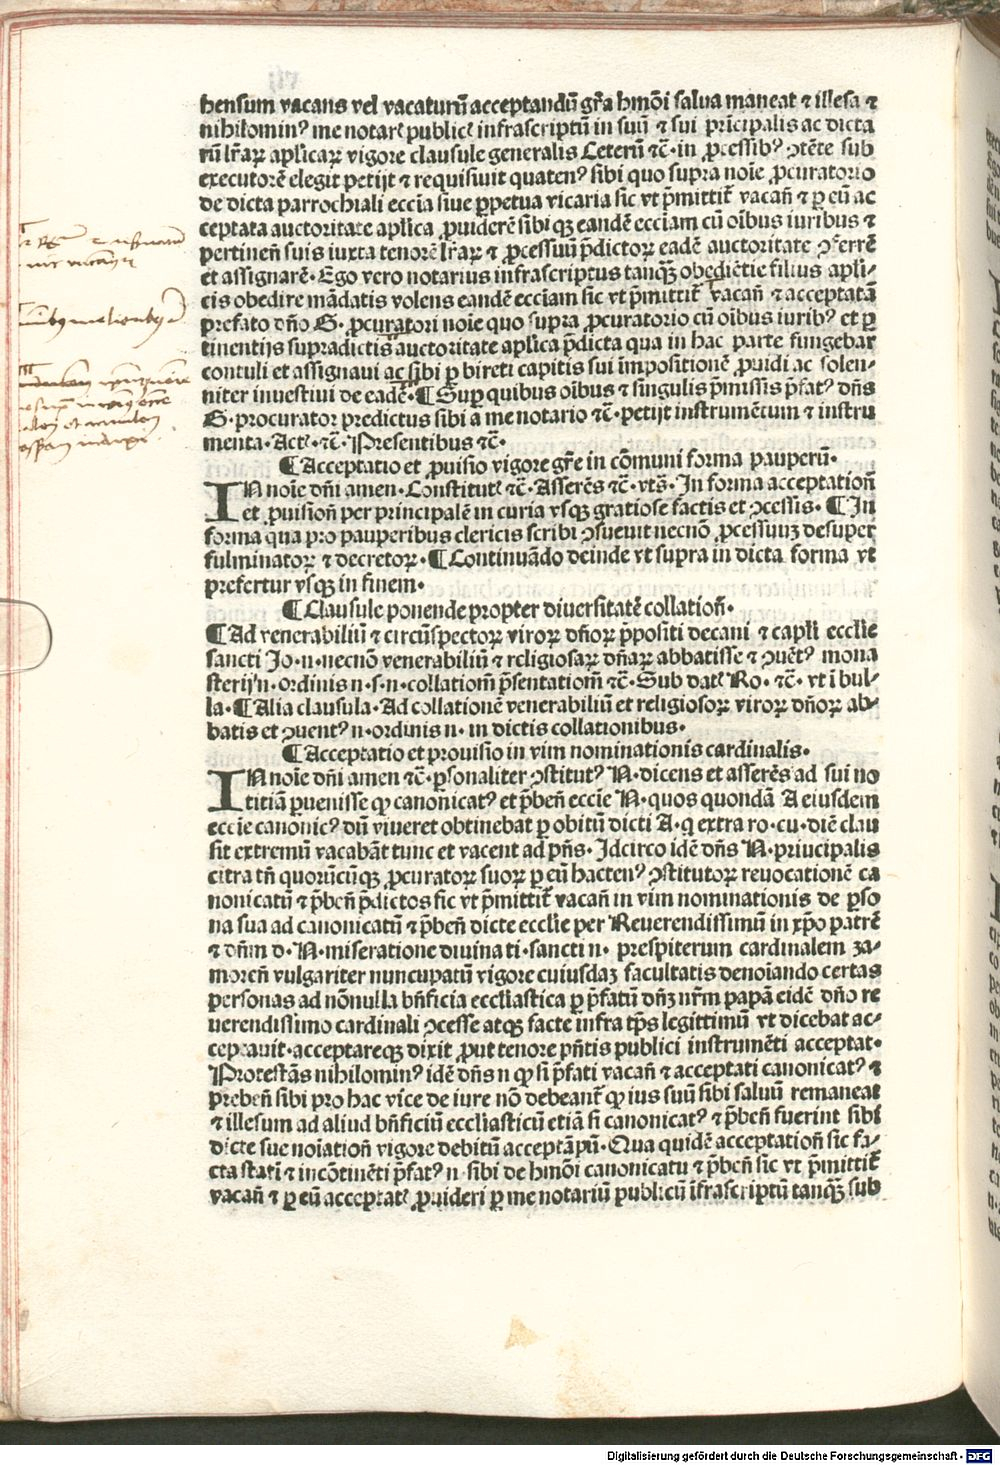 hensum vacans vel vacaturū acceptandū gr̄a hmōi salua maneat ⁊ illesa ⁊
nihilominꝰ me notarꝭ publicꝭ infrascriptū in suū ⁊ sui prīcipalis ac dicta
rū lr̄aꝝ aplicaꝝ vigore clausule generalis Ceterū ⁊c̄· in ꝓcessibꝰ ꝯtēte sub
executorē elegit petijt ⁊ requisiuit quatenꝰ sibi quo supra noīe ꝓcuratorio
de dicta parrochiali ecc̄ia siue ꝑpetua vicaria sic vt p̄mittit᷑ vacan̄ ⁊ ꝑ eū ac
ceptata auctoritate aplīca ꝓuiderē sibi qꝫ eandē ecciam cū oībus iuribus ⁊
pertinen̄ suis iuxta tenorē lr̄aꝝ ⁊ ꝓcessuū p̄dictoꝝ eadē auctoritate ꝯferrē
et assignarē· Ego vero notarius infrascriptus tanqꝫ̄ obediētie filius apli-
cis obedire mādatis volens eandē ecciam sic vt p̄mittit᷑ vacan̄ ⁊ acceptatā
prefato dn̄o G· ꝓcuratori noīe quo supra ꝓcuratorio cū oībus iuribꝰ et ꝑ
tinentijs supradictis auctoritate aplīca p̄dicta qua in hac parte fungebar
contuli et assignaui ac sibi ꝑ bireti capitis sui impositionē ꝓuidi ac solen-
niter inuestiui de eadē· ¶ Suꝑ quibus oībus ⁊ singulis p̄missis p̄fatꝰ dn̄s
G· procurator predictus sibi a me notario ⁊c̄· petijt instrumētum ⁊ instru
menta· Actꝭ ·⁊c̄· Presentibus ⁊c̄·
¶ Acceptatio et ꝓuisio vigore gr̄e in cōmuni forma pauperū·
IN noīe dn̄i amen· Constitutꝭ ⁊c̄· Asserēs ⁊c̄· vts̄· In forma acceptation̄
et ꝓuision̄ per principalē in curia vsqꝫ gratiose factis et ꝯcessis· ¶ In
forma qua pro pauperibus clericis scribi ꝯsueuit necnō ꝓcessuuꝫ desuper
fulminatoꝝ ⁊ decretoꝝ· ¶ Continuādo deinde vt supra in dicta forma vt
prefertur vsqꝫ in finem·
¶ Clausule ponende propter diuersitatē collation̄·
¶ Ad venerabiliū ⁊ circūspectoꝝ viroꝝ dn̄oꝝ p̄positi decani ⁊ capl̄i ecclīe
sancti Jo· n· necnō venerabiliū ⁊ religiosaꝝ dn̄aꝝ abbatisse ⁊ ꝯuētꝰ mona
sterij n· ordinis n· s· n· collatiom̄ p̄sentatiom̄ ⁊c̄· Sub datꝭ Ro· ⁊c̄· vt ī bul-
la· ¶ Alia clausula· Ad collationē venerabiliū et religiosoꝝ viroꝝ dn̄oꝝ ab-
batis et ꝯuentꝰ n· ordinis n· in dictis collationibus·
¶ Acceptatio et prouisio in vim nominationis cardinalis·
IN noīe dn̄i amen ⁊c̄· ꝑsonaliter ꝯstitutꝰ N· dicens et asserēs ad sui no
titiā ꝑuenisse ꝙ canonicatꝰ et p̄ben̄ ecc̄ie N· quos quondā A eiusdem
eccie canonicꝰ dū viueret obtinebat ꝑ obitū dicti A· q extra ro· cu· diē clau
sit extremū vacabāt tunc et vacent ad pn̄s· Idcirco idē dn̄s N· principalis
citra tn̄ quorūcūqꝫ ꝓcuratoꝝ suoꝝ ꝑ eū hactenꝰ ꝯstitutoꝝ reuocationē ca
nonicatū ⁊ p̄ben̄ p̄dictos sic vt p̄mittit᷑ vacan̄ in vim nominationis de ꝑso
na sua ad canonicatū ⁊ p̄ben̄ dicte ecclīe per Reuerendissimū in xp̄o patrē
⁊ dn̄m d· N· miseratione diuina ti· sancti n· prespiterum cardinalem za-
moren̄ vulgariter nuncupatū vigore cuiusdaꝫ facultatis denoīando certas
personas ad nōnulla bn̄ficia eccl̄iastica ꝑ p̄fatū dn̄ꝫ nr̄m papā eidē dn̄o re
uerendissimo cardinali ꝯcesse atqꝫ facte infra tp̄s legittimū vt dicebat ac-
ceptauit· acceptareqꝫ dixit ꝓut tenore pn̄tis publici instrumēti acceptat·
Protestās nihilominꝰ idē dn̄s n ꝙ si p̄fati vacan̄ ⁊ acceptati canonicatꝰ ⁊
preben̄ sibi pro hac vice de iure nō debeant᷑ ꝙ ius suū sibi saluū remaneat
⁊ illesum ad aliud bn̄ficiū eccl̄iasticū etiā si canonicatꝰ ⁊ p̄ben̄ fuerint sibi
dicte sue noīation̄ vigore debitū acceptā pū· Qua quidē acceptation̄ sic fa-
cta statī ⁊ incōtinēti p̄fatꝰ n· sibi de hmōi canonicatu ⁊ p̄ben̄ sic vt p̄mittit᷑
vacan̄ ⁊ ꝑ eū acceptatꝭ ꝓuideri ꝑ me notariū publicū īfrascriptū tanqꝫ̄ sub
Digitalisierung gefördert durch die Deutsche Forschungsgemeinschaft - DFG